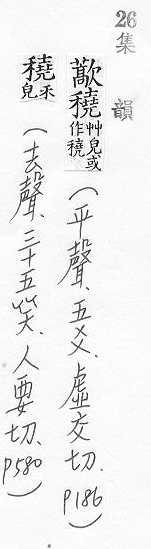 26 集韻
藃穘艸皃或作穘(平聲、五爻、虛交切、P186)
穘禾皃(去聲、三十五笑、人要切、P580)